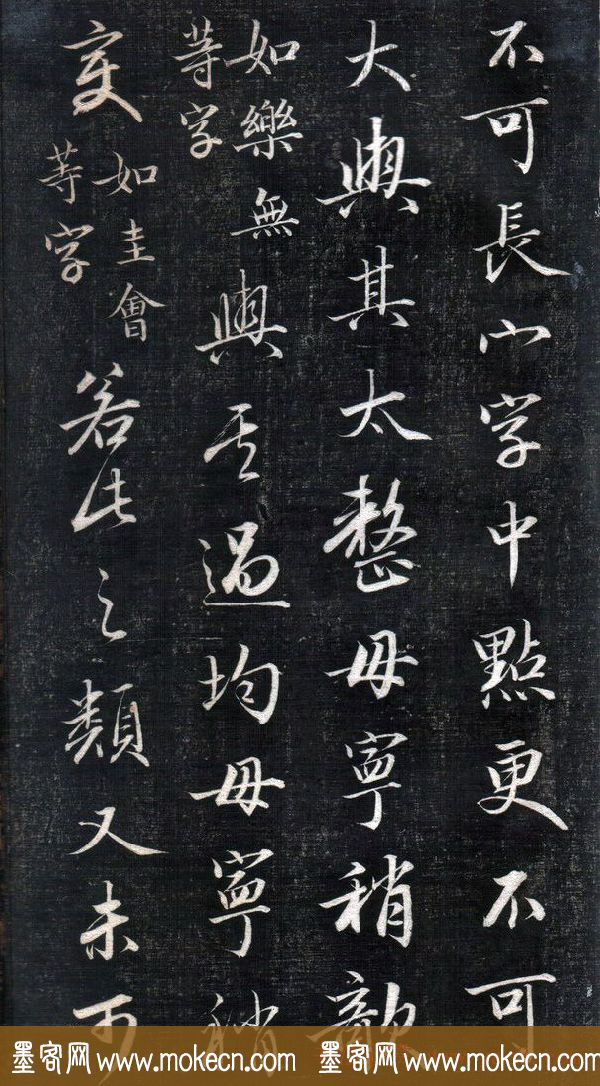 不可長宀字中點更不可
大與其太整毋寧稍
如樂無
等字
與其過均毋寧稍
変
如圭會
等字
若此之類又未可
墨客网 www.mokecn.com 墨客网 www.mokecn.com